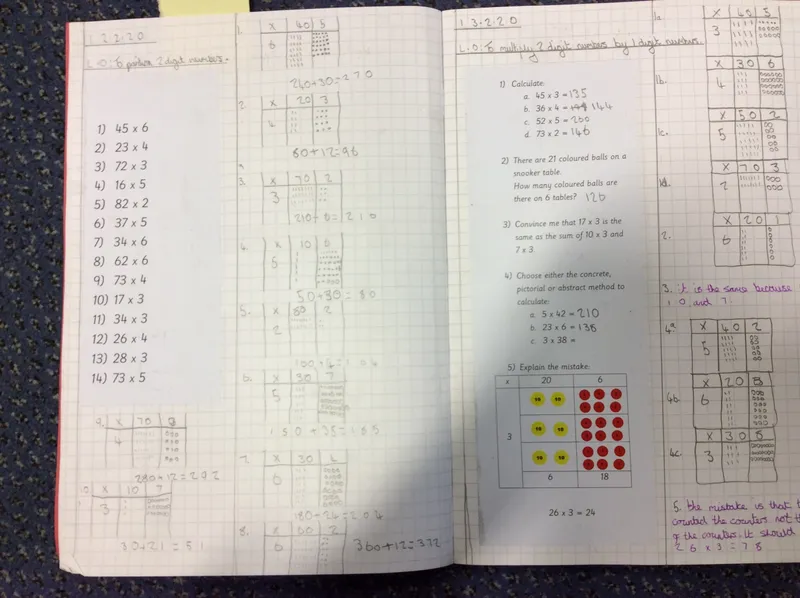 12.2.20
L.O. to partion 2 digit numbers.
1) 45 x 6
2) 23 x 4
3) 72 x 3
4) 16 x 5
5) 82 x 2
6) 37 x 5
7) 34 x 6
8) 62 x 6
9) 73 x 4
10) 17 x 3
11) 34 x 3
12) 26 x 4
13) 28 x 3
14) 73 x 5
9. x 70 3
4
280+12=292
10. x 10 7
3
30+21=51
1. x 40 5
6
240+30=270
2. x 20 3
4
80+12=96
3. x 70 2
3
4. x 10 6
5
50+30=80
5. x 80 2
2
6. x 30 7
5
150+35=185
7. x 30 4
6
180+24=204
8. x 60 2
6
360+12=372
13.2.20
L.O. to multiply 2 digit numbers by 1 digit numbers.
1) Calculate:
a. 45 x 3 = 135
b. 36 x 4 = 144
c. 52 x 5 = 260
d. 73 x 2 = 146
2) There are 21 coloured balls on a
snooker table.
How many coloured balls are
there on 6 tables? 126
3) Convince me that 17 x 3 is the
same as the sum of 10 x 3 and
7 x 3.
4) Choose either the concrete,
pictorial or abstract method to
calculate:
a. 5 x 42 = 210
b. 23 x 6 = 138
c. 3 x 38 =
5) Explain the mistake:
x 20 6
3
10 10
10 10
10 10
6 18
26 x 3 = 24
1a. x 42 5
3
1b. x 30 6
4
1c. x 50 2
5
1d. x 70 3
2
2. x 20 1
6
3. it is the same because
10 and 7
4a. x 40 2
5
4b. x 20 3
6
4c. x 30 8
3
5. the mistake is that
counted the counters not
of the counter. It should
26 x 3 = 78